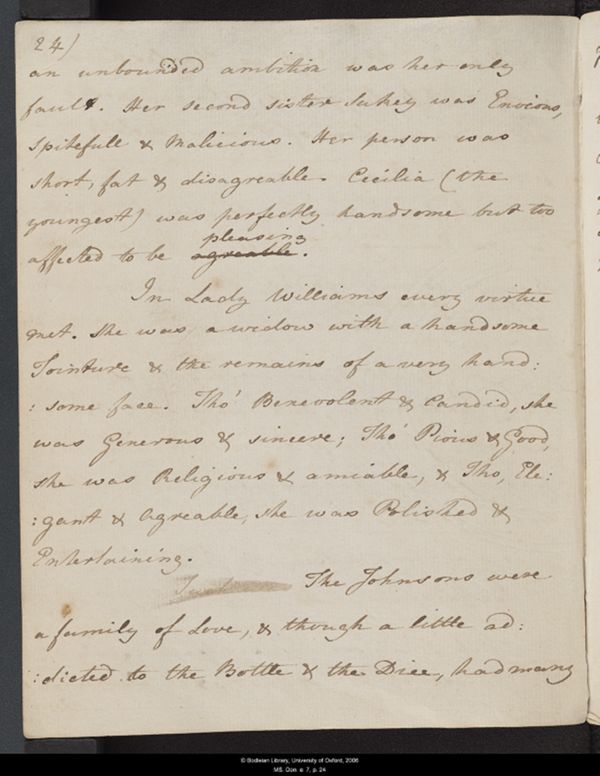 24)
an unbounded ambition was her only
fault. Her second sister Sukey was Envious,
Spitefull & Malicious. Her person was
short, fat & disagreable. Cecilia (the
youngest) was perfectly handsome but too
pleasing
affected to be agreable.
In Lady Williams every virtue
met. She was a widow with a handsome
Jointure & the remains of a very hand:
: some face. Tho' Benevolent & Candid, she
was Generous & sincere; Tho' Pious & Good,
she was Religious & amiable, & Tho, Ele:
: gant & Agreable, she was Polished &
Entertaining.
The Johnsons were
a family of Love, & though a little ad:
: dicted to the Bottle & the Dice, had many
© Bodleian Library, University of Oxford, 2006
MS. Don. e. 7, p. 24